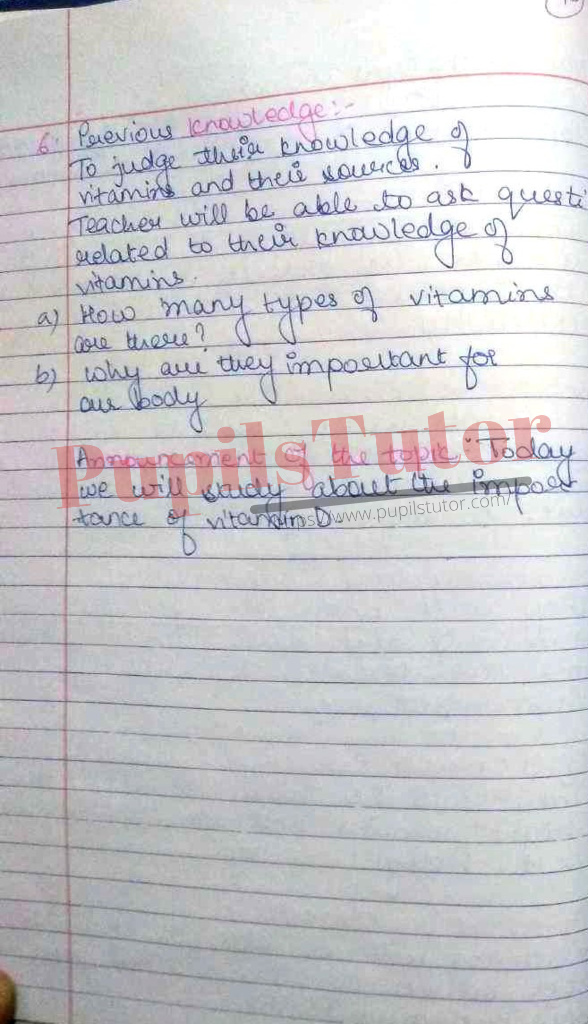 6. Previous knowledge:-
To judge their knowledge of
vitamins and their sources.
Teacher will be able to ask questi
related to their knowledge of
vitamins.
a) How many types of vitamins
are there?
b) why are they important for
our body
PupilsTutor
Announcement of the topic: "Today
we will study about the impor
tance of vitamin D.
www.pupilstutor.com/